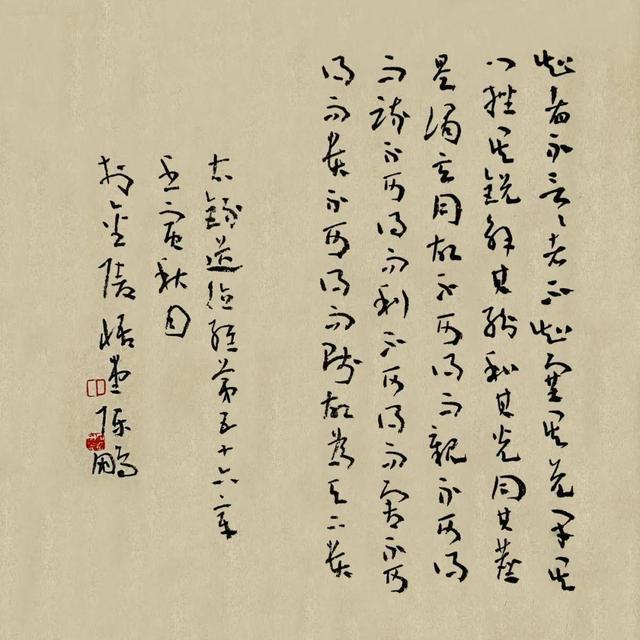 知者不言〻者不知塞其兌閉其
門挫其銳解其紛和其光同其塵
是謂玄同故不可得而親不可得
而疏不可得而利不可得而害不可
得而貴不可得而賤故為天下貴
錄道德經第五十六章
壬寅秋日
於金陵悟堂陳鵬